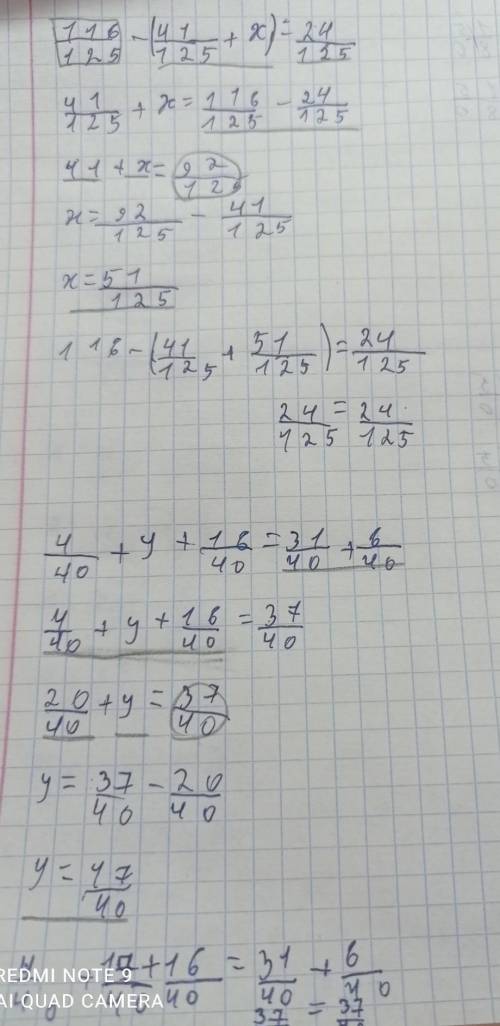 116/125 - (41/125 + x) = 24/125
41/125 + x = 116/125 - 24/125
41 + x = 92/125
x = 92/125 - 41/125
x = 51/125
116 - (41/125 + 51/125) = 24/125
24/125 = 24/125
4/40 + y + 16/40 = 31/40 + 6/40
4/40 + y + 16/40 = 37/40
20/40 + y = 37/40
y = 37/40 - 20/40
y = 17/40
17 + 16/40 = 31/40 + 6/40
37 = 37
REDMI NOTE 9
AI QUAD CAMERA